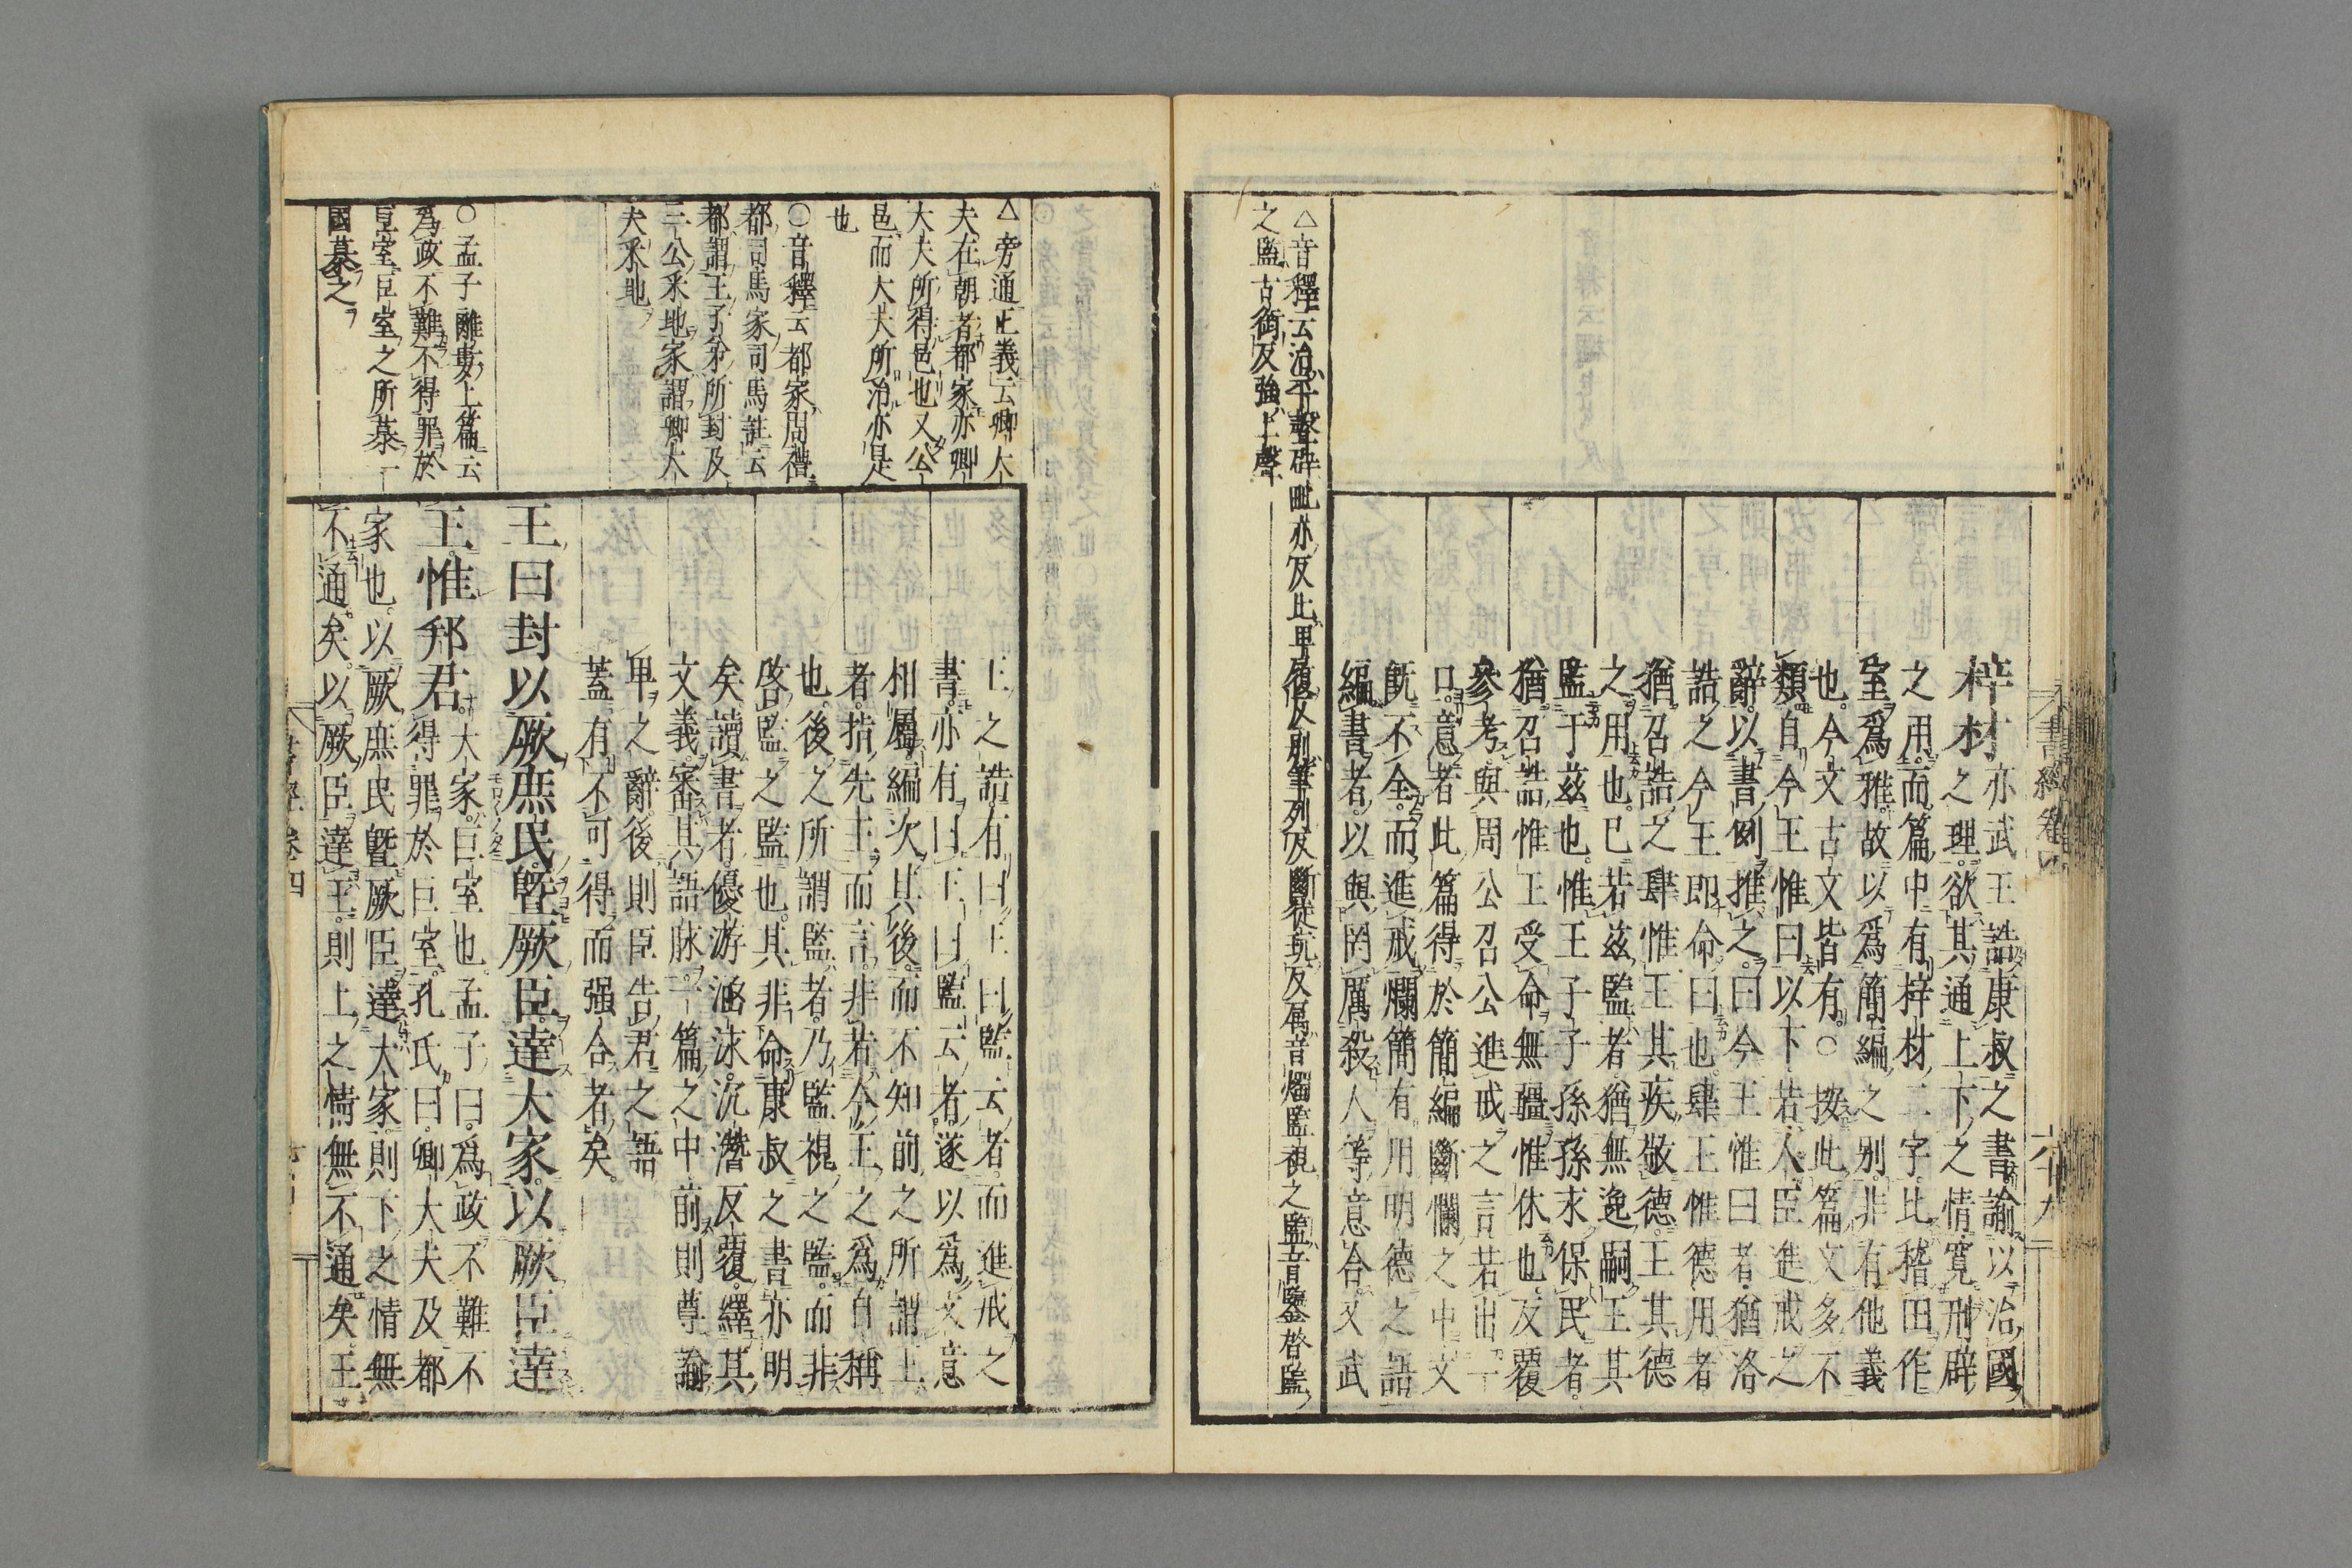 書經卷四 六十九
梓材亦武王誥康叔之書諭以治國
之理欲其通上下之情寛刑辟
之用而篇中有梓材二字比稽田作
室爲雅故以爲簡編之別非有他義
也今文古文皆有○按此篇文多不
類自今王惟曰以下若人臣進戒之
辭以書例推之曰今王惟曰者猶洛
誥之今王即命曰也肆王惟德用者
猶召誥之肆惟王其疾敬德王其德
之用也已若茲監者猶無逸嗣王其
監于茲也惟王子子孫孫永保民者
猶召誥惟王受命無疆惟休也反覆
參考與周公召公進戒之言若出一
口意者此篇得於簡編斷爛之中文
既不全而進戒爛簡有用明德之語
編書者以與罔厲殺人等意合又武
△音釋云治平聲辟毗亦反比卑履反別筆列反斷徒玩反属音燭監視之監音鑒啓監
之監古銜反強上聲
△旁通正義云卿大
夫在朝者都家亦卿
大夫所得邑也又公
邑而大夫所治亦是
也
○音釋云都家周禮
都司馬家司馬註云
都謂王子弟所封及
三公采地家謂卿大
夫采地
○孟子離婁上篇云
爲政不難不得罪於
巨室巨室之所慕一
國慕之
王之誥有曰王曰監云者而進戒之
書亦有曰王曰監云者遂以爲文意
相屬編次其後而不知前之所謂王
者指先王而言非若今王之爲自稱
也後之所謂監者乃監視之監而非
啓監之監也其非命康叔之書亦明
矣讀書者優游涵泳沉潛反覆繹其
文義審其語脉一篇之中前則尊諭
卑之辭後則臣告君之語
蓋有不可得而强合者矣
王曰封以厥庶民暨厥臣達大家以厥臣達
王惟邦君大家巨室也孟子曰爲政不難不
得罪於巨室孔氏曰卿大夫及都
家也以厥庶民暨厥臣達大家則下之情無
不通矣以厥臣達王則上之情無不通矣王